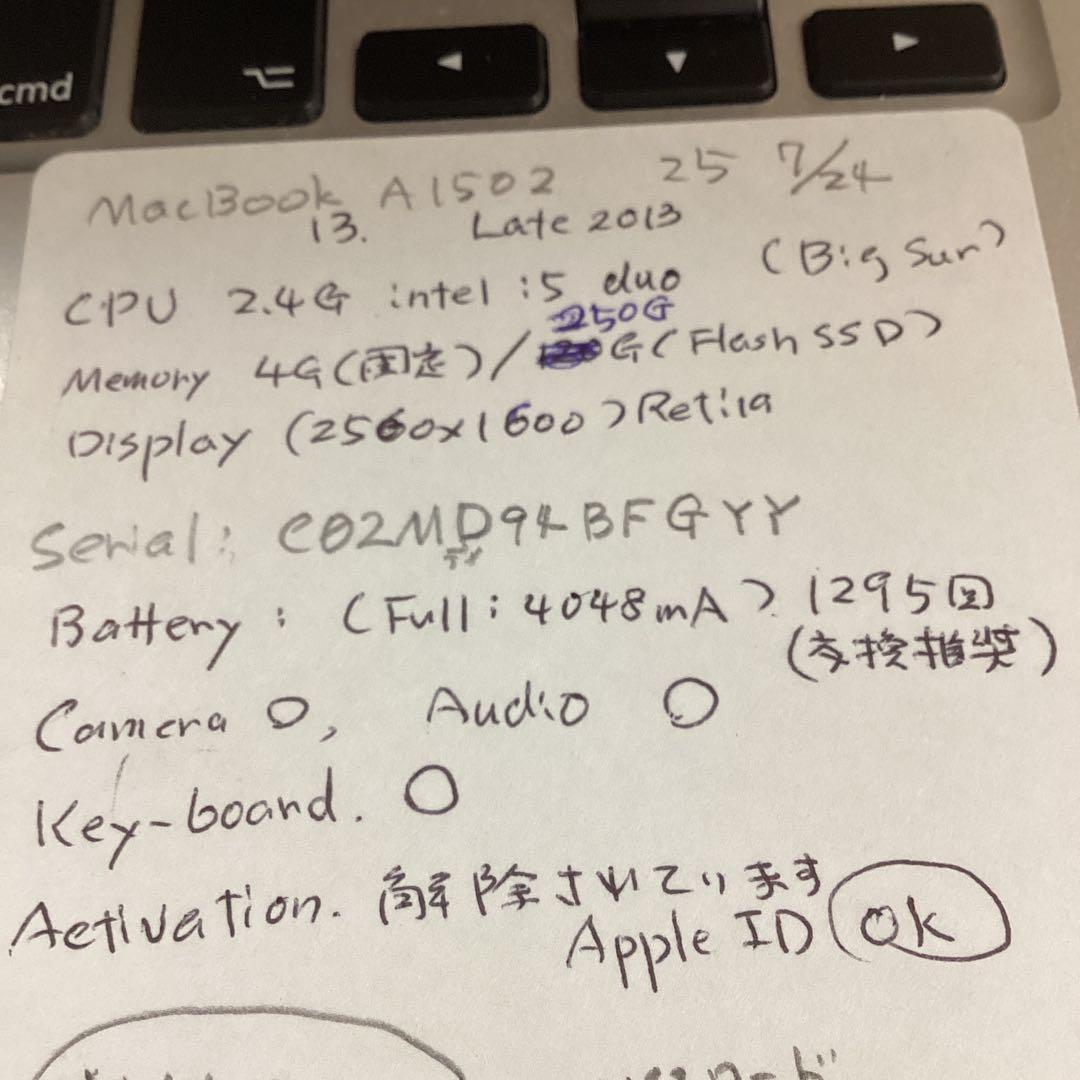 cmd
MacBook A1502 25 7/24
13. Late 2013
(Big Sur)
CPU 2.4G intel i5 duo
250G
Memory 4G(固定)/ G(Flash SSD)
Display (2560x1600) Retina
Serial: C02MD94BFGYY
デイ
Battery: (Full: 4048mA) 1295回
(交換推奨)
Camera O, Audio O
Key-board. O
Activation. 解除されています
Apple ID OK